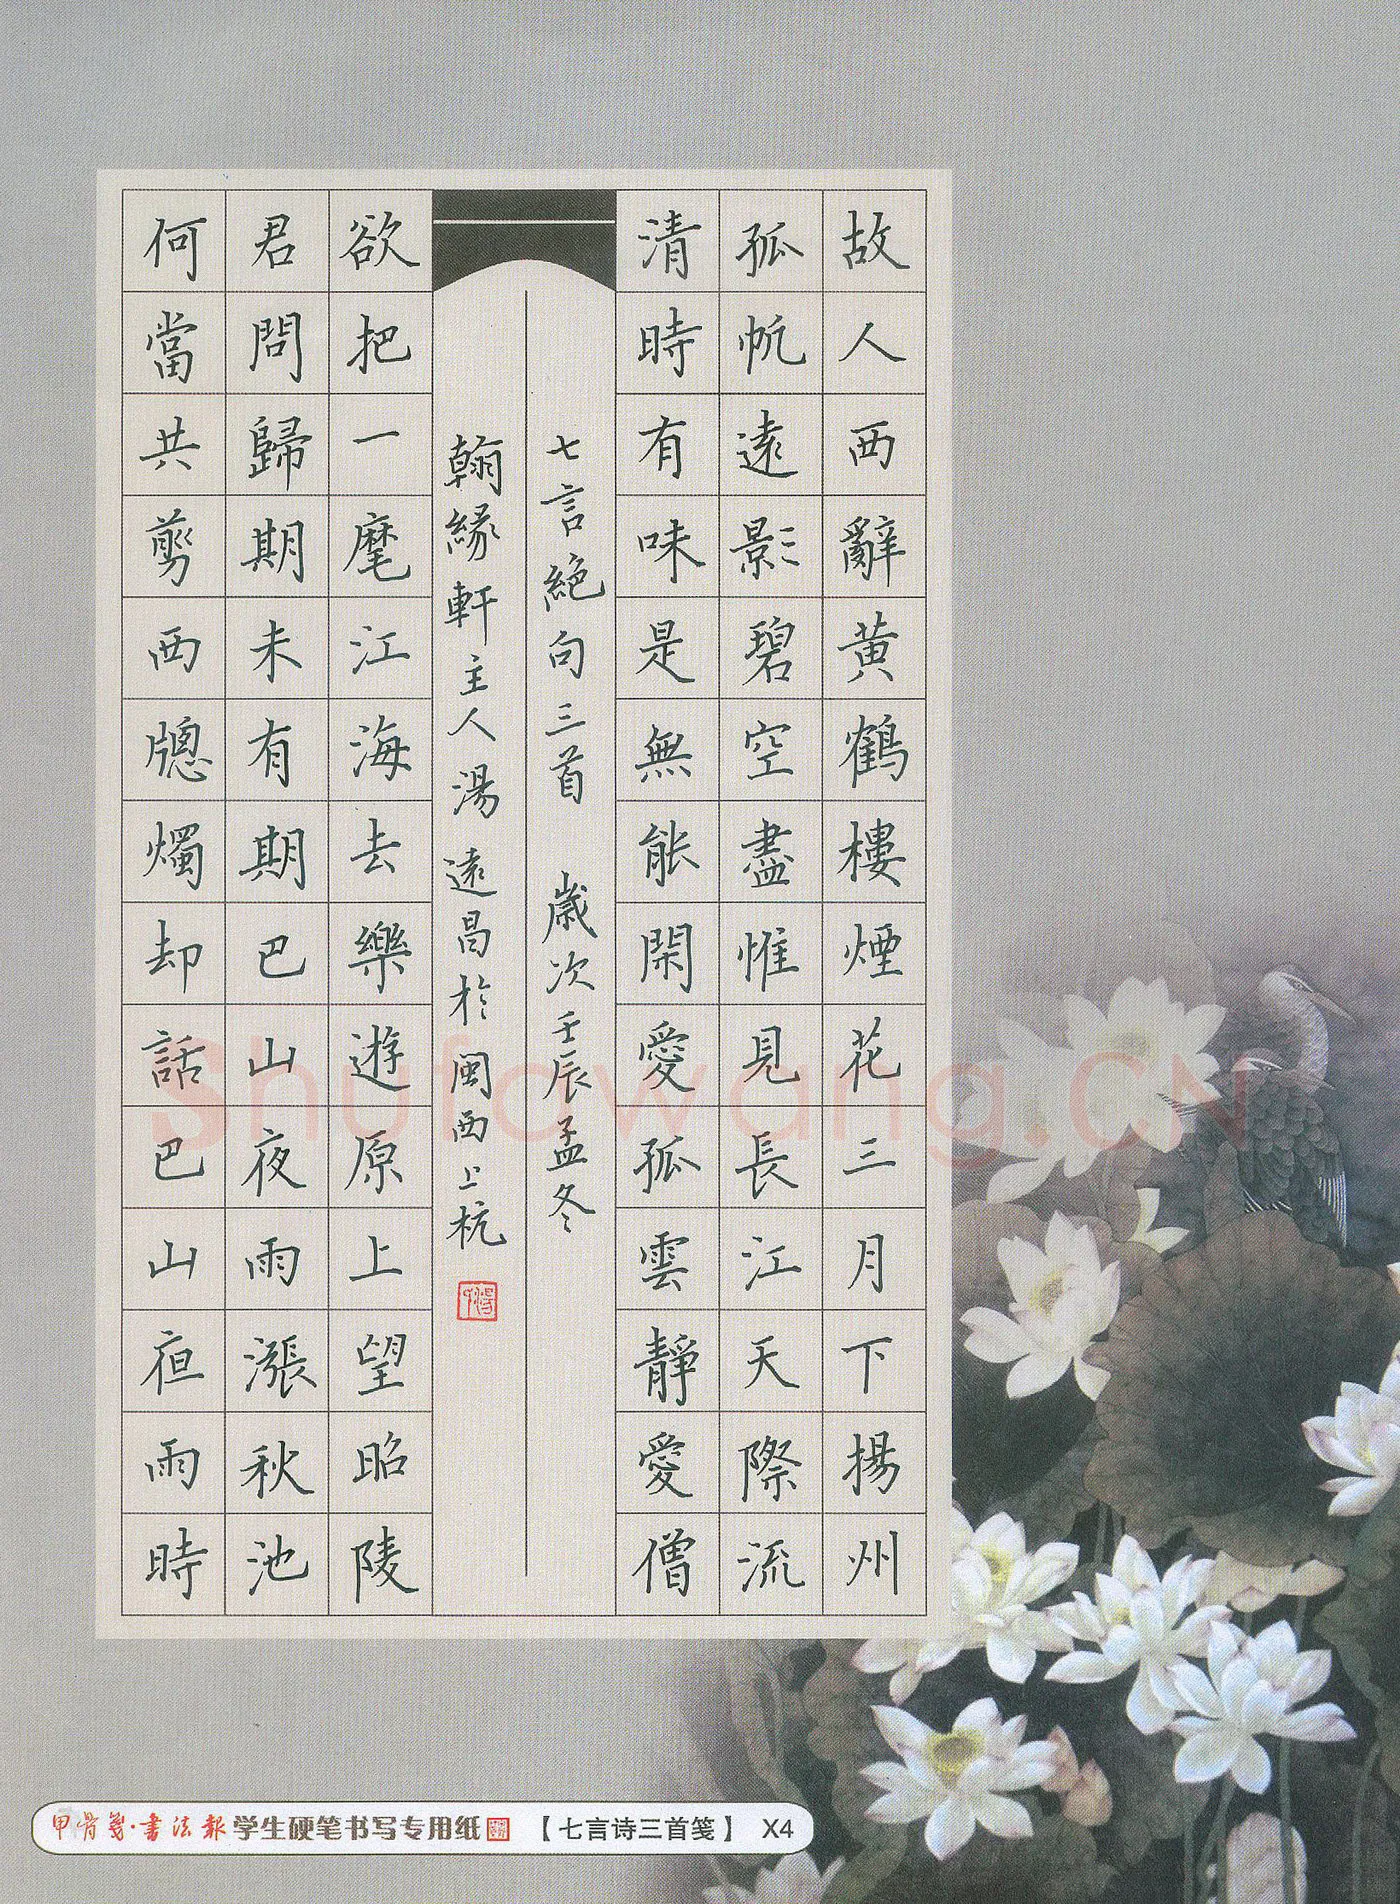 故人西辭黃鶴樓煙花三月下揚州
孤帆遠影碧空盡惟見長江天際流
清時有味是無能閑愛孤雲靜愛僧
七言絕句三首 歲次壬辰孟冬
翰緣軒主人湯遠昌於閩西上杭
欲把一麾江海去樂遊原上望昭陵
君問歸期未有期巴山夜雨漲秋池
何當共剪西窗燭却話巴山夜雨時
Shufawang.CN
甲骨箋·書法報 学生硬笔书写专用纸 【七言诗三首笺】 X4